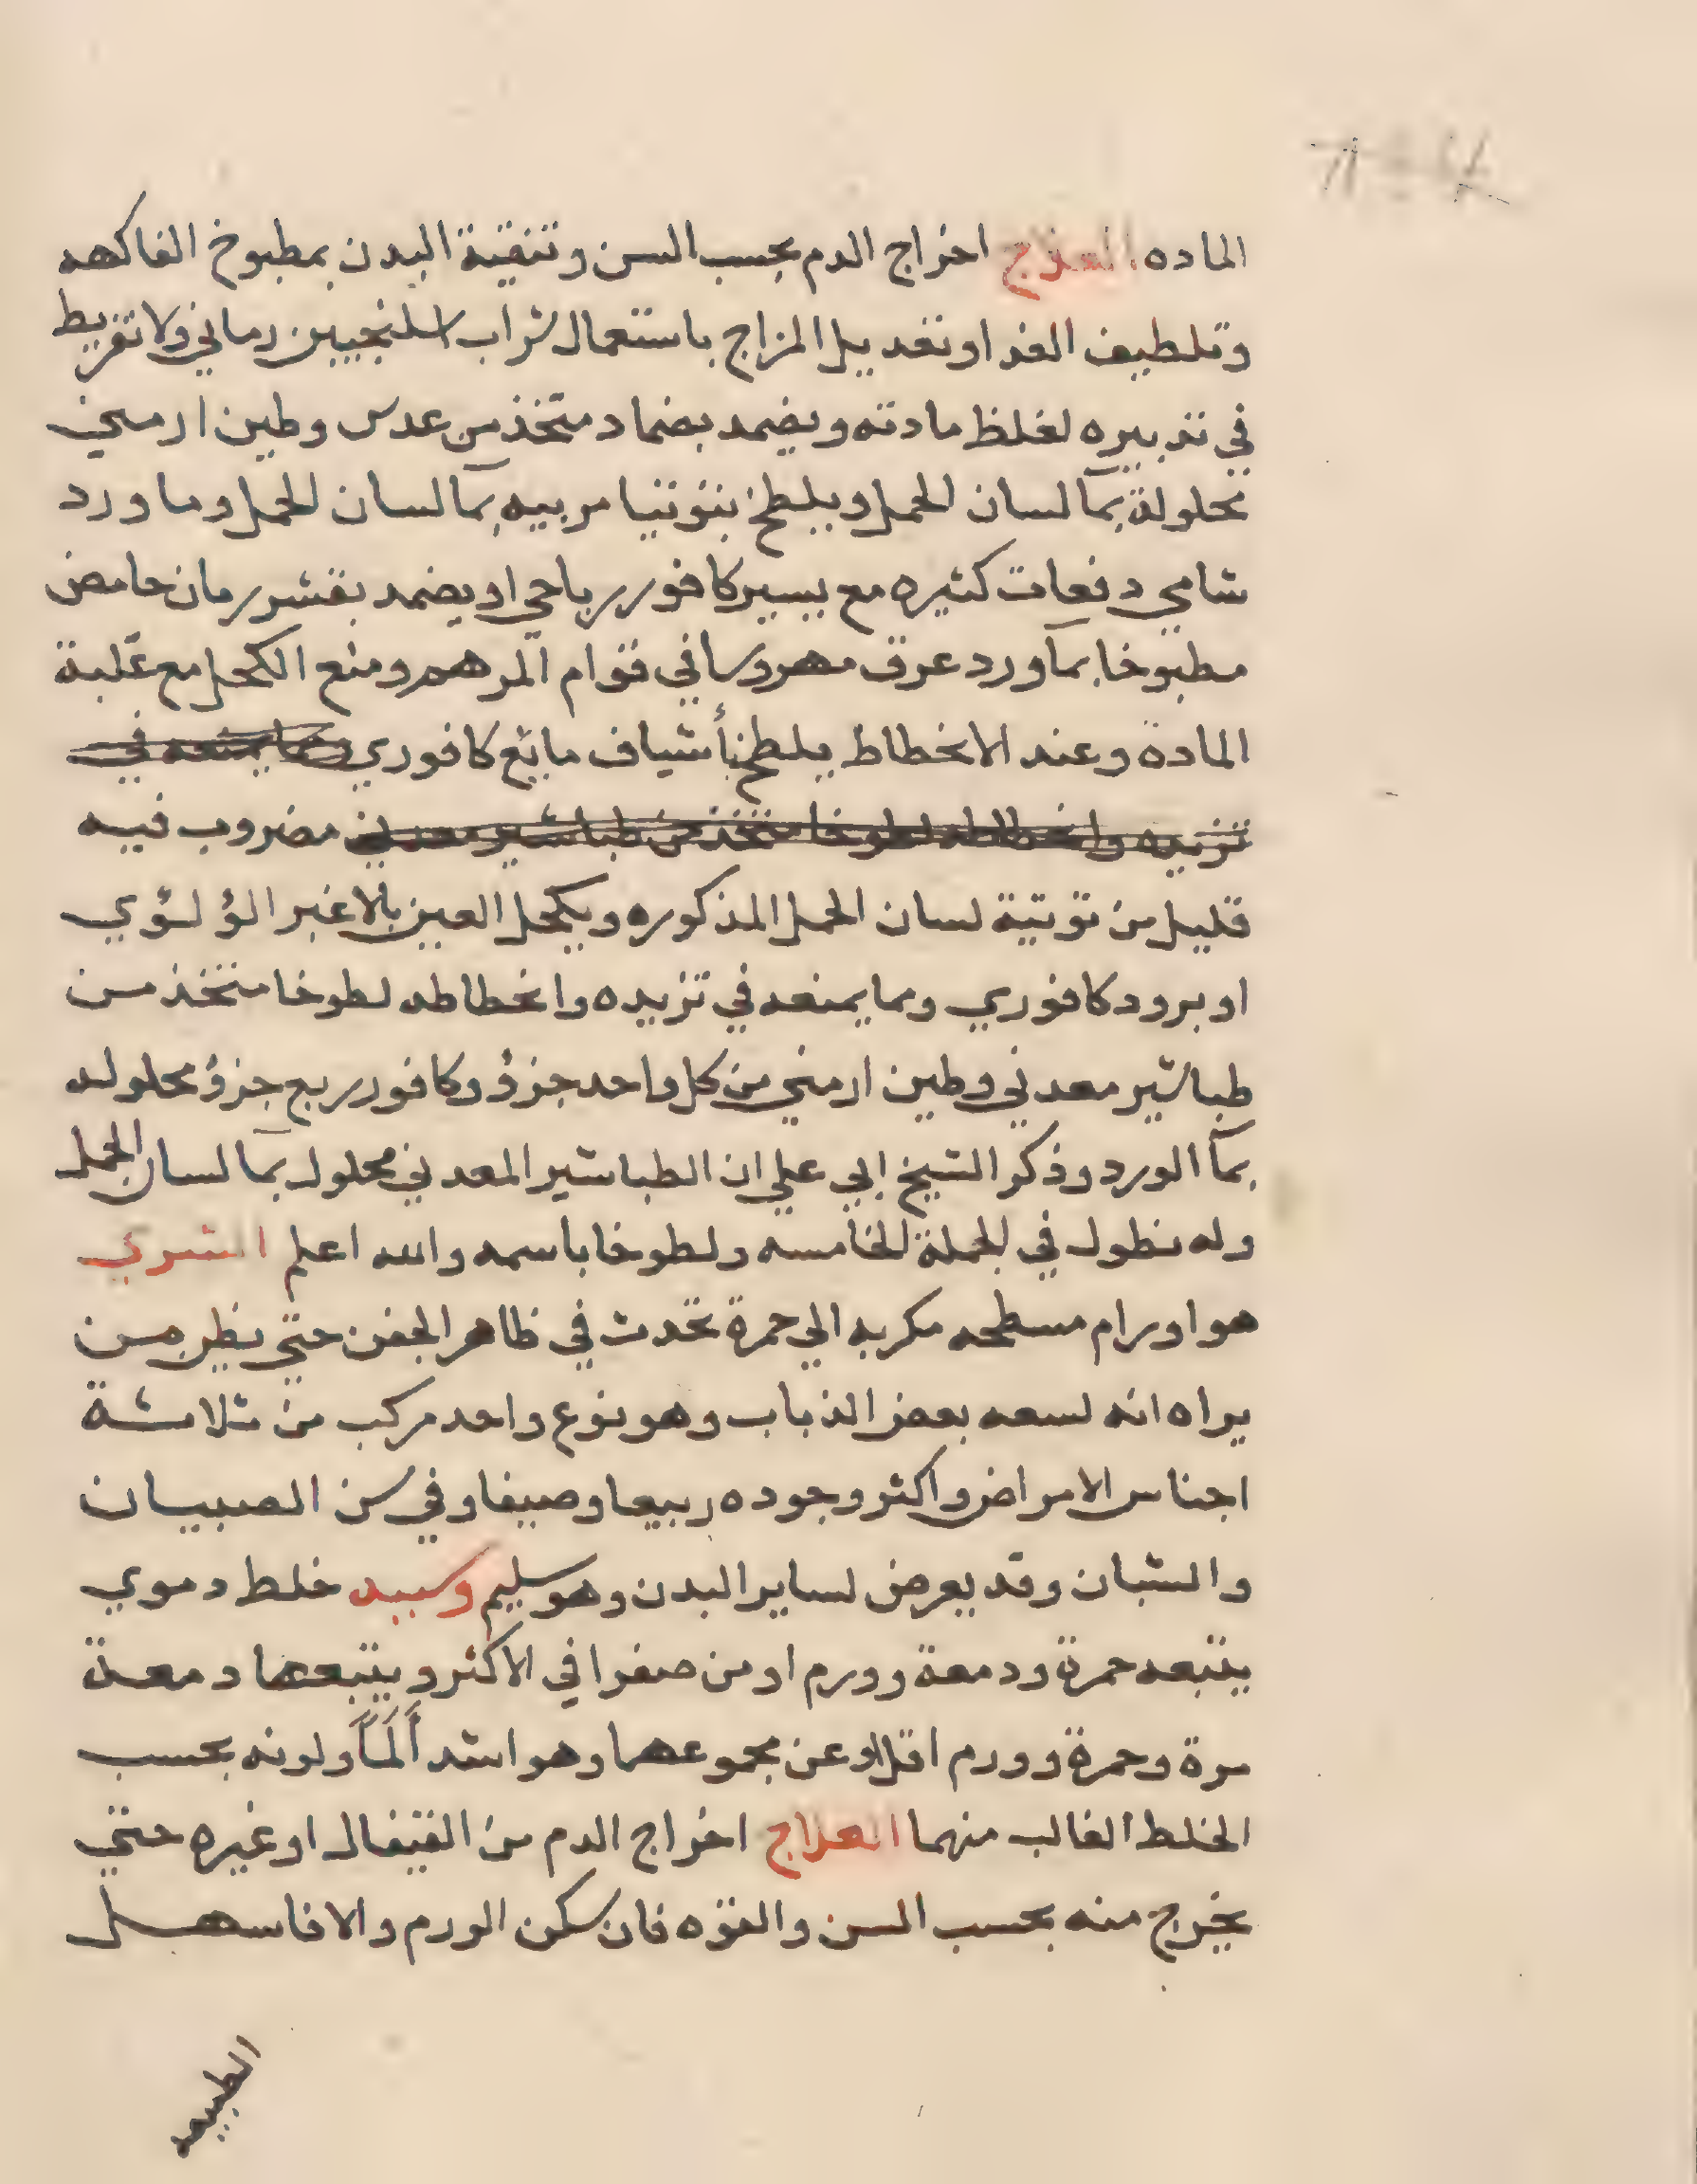 الماده العلاج اخراج الدم بحسب السن وتنقية البدن بمطبوخ الفاكهه
وتلطيف الغذا وتعديل المزاج باستعمال شراب اسكنجبين رماني ولا تفريط
في تدبيره لغلظ مادته ويضمد بضماد متخذ من عدس وطين ارمني
محلولة بمآ لسان الحمل ويلطخ بتوتيا مربيه بمآ لسان الحمل وماورد
شامي دفعات كثيره مع يسير كافور رباحي او يضمد بقشر رمان حامض
مطبوخا بمآورد عرق مهروسا في قوام المرهم ومنع الكحل مع غلبة
المادة وعند الانحطاط يلطخ بأشياف مايع كافوري ومما يمنعه في
تزيده وانحطاطه لطوخا متخذ من طباشير معدني مضروب فيه
قليل من توتية لسان الحمل المذكوره ويكحل العين بالاغبر الؤلؤي
او برود كافوري ومما يمنعه في تزيده وانحطاطه لطوخا متخذ من
طباشير معدني وطين ارمني من كل واحد جزؤ وكافور ربع جزؤ محلوله
بمآ الورد وذكر الشيخ ابي علي ان الطباشير المعدني محلول بمآ لسان الحمل
وله نطول في الجملة الخامسه ولطوخا باسمه والله اعلم الشري
هو اورام مسطحه مكربه الي حمرة تحدث في ظاهر الجفن حتي يظن من
يراه انه لسعه بعض الذباب وهو نوع واحد مركب من ثلاثة
اجناس الامراض واكثر وجوده ربيعا وصيفا وفي سن الصبيان
والشبان وقد يعرض لساير البدن وهو سليم وسببه خلط دموي
يتبعه حمرة ودمعة وورم او من صفرا في الاكثر ويتبعها دمعة
مرة وحمرة وورم اقل او عن مجموعهما وهو اشد ألمَاً ولونه بحسب
الخلط الغالب منهما العلاج اخراج الدم من القيفال او غيره حتي
يخرج منه بحسب السن والقوه فان سكن الورم والا فاسهل
الطبيعه